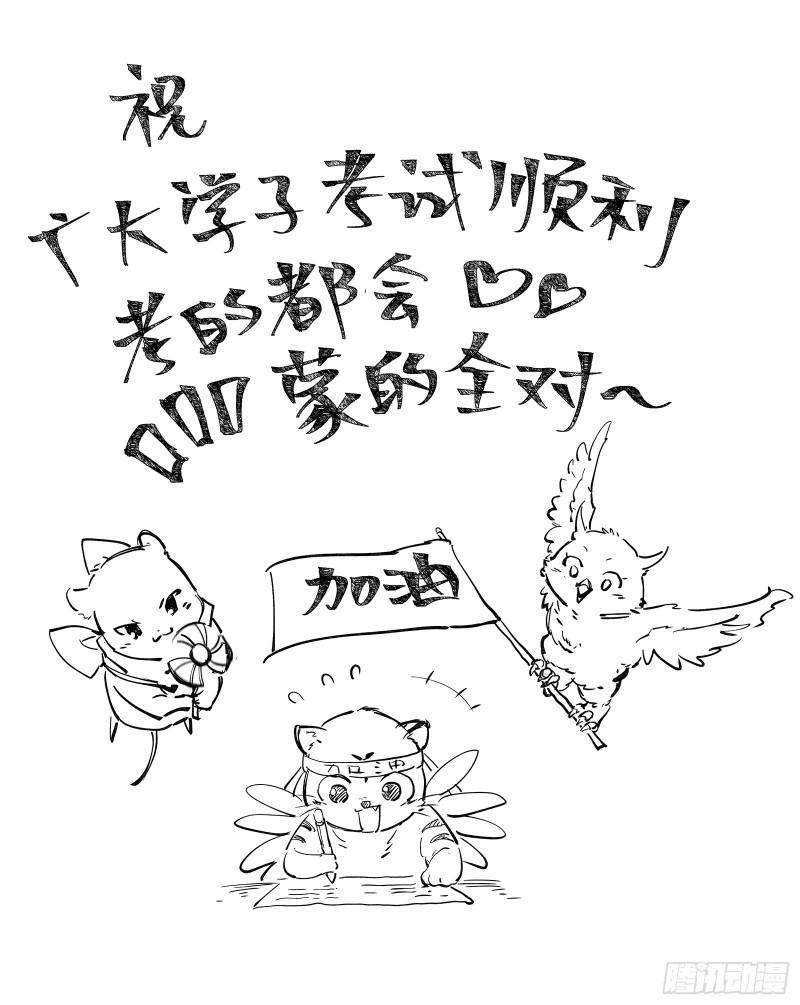 祝
广大学子考试顺利
考的都会♡♡
蒙的全对～
加油
加油
腾讯动漫